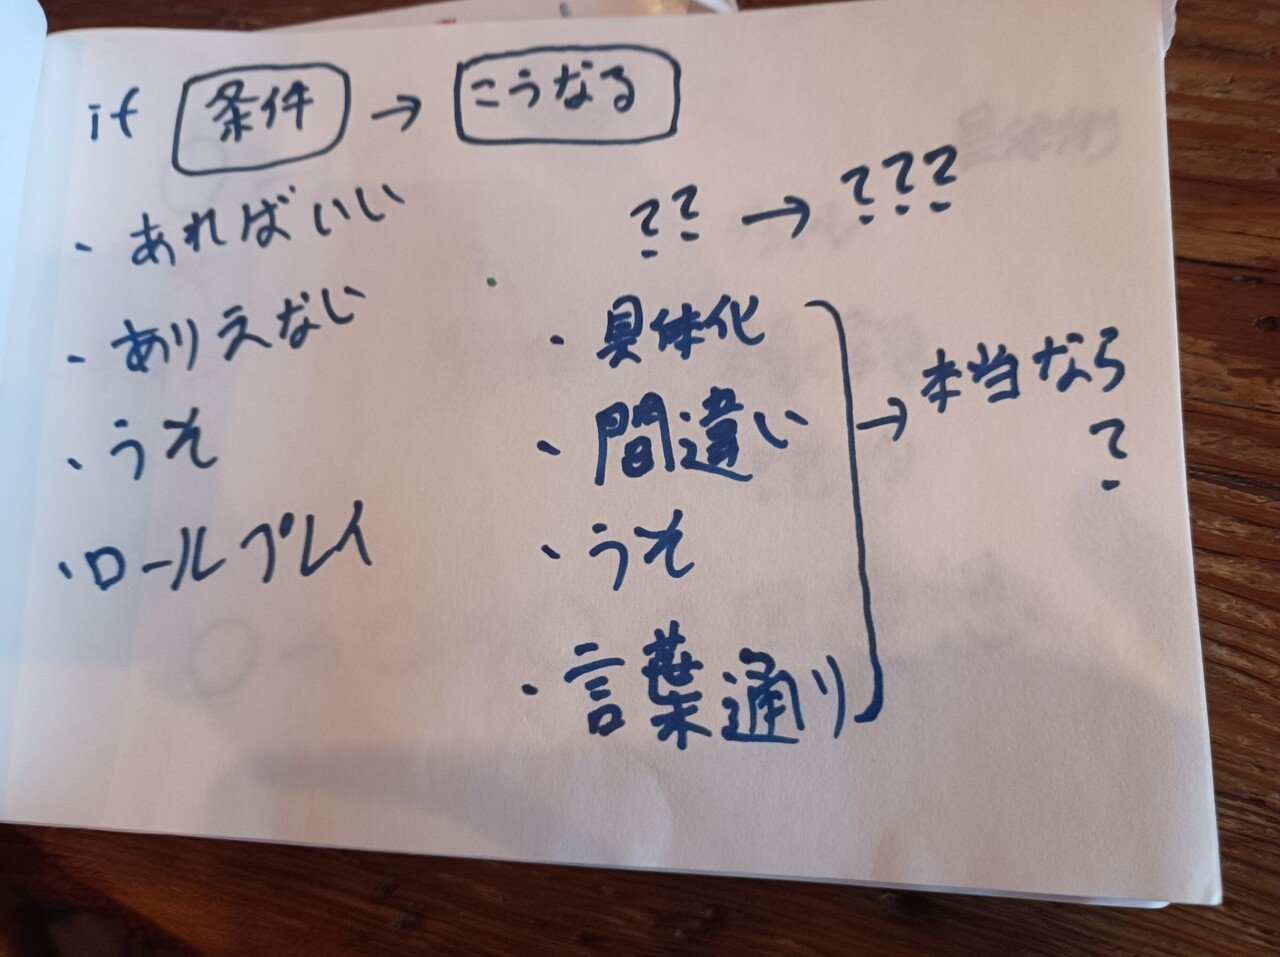 if 条件 → こうなる
・あればいい
・ありえない
・うそ
・ロールプレイ
?? → ???
・具体化
・間違い
・うそ
・言葉通り
→ 本当なら
?